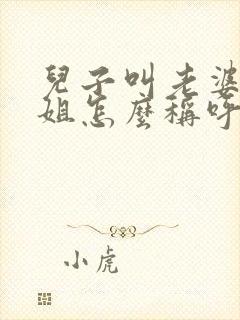 兒子叫老婆
姐怎麼稱呼
小虎